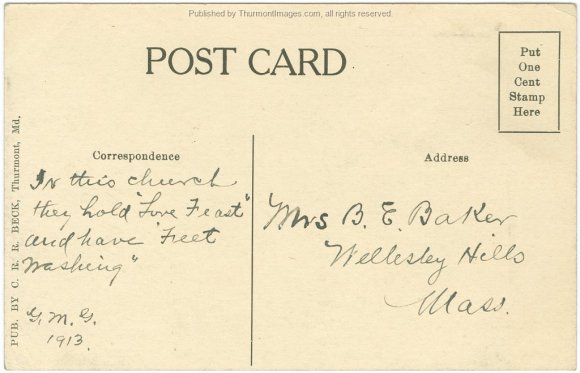 Published by ThurmontImages.com, all rights reserved.
POST CARD
Put
One
Cent
Stamp
Here
PUB. BY C. R. R. BECK, Thurmont, Md.
Correspondence
In this church
they hold "Love Feast"
and have "Feet
Washing"
G. M. G.
1913.
Address
Mrs B. E. Baker
Wellesley Hills
Mass.